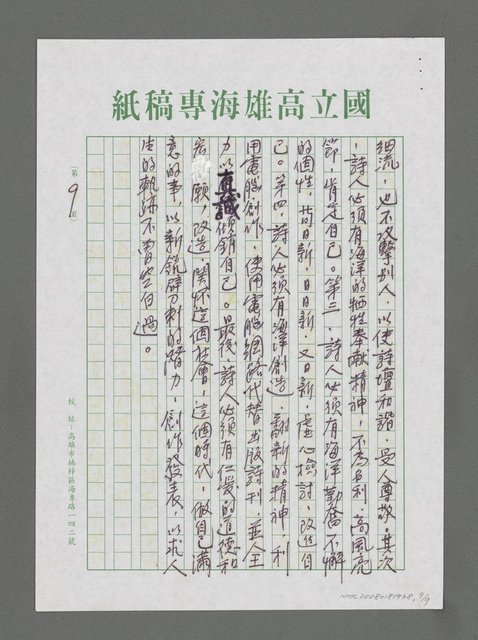 國立高雄海專稿紙
細流，也不攻擊別人，以使詩壇和諧，受人尊敬。其次
，詩人必須有海洋的犧牲奉獻精神，不為名利，高風亮
節，肯定自己。第三，詩人必須有海洋勤奮不懈
的個性，苟日新，日日新，又日新，虛心檢討，改進自
己。第四，詩人必須有海洋創造、翻新的精神，利
用電腦創作，使用電腦網路代替出版詩刊，並全
力以真誠傾銷自己。最後，詩人必須有仁愛的道德和
宏願，改造、關懷這個社會，這個時代，做自己滿
意的事，以新銳犀利的潛力，創作發表，以求人
生的軌跡不曾空白過。
（第9頁）
校址：高雄市楠梓區海專路一四二號
NMTL20080181938, 9/9